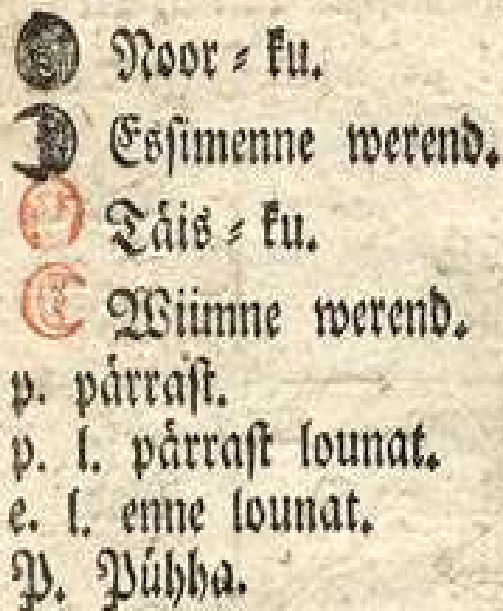 Noor ⸗ ku.
Essimenne werend.
Täis ⸗ ku.
Wiimne werend.
p. pärrast.
p. l. pärrast lounat.
e. l. enne lounat.
P. Pühha.